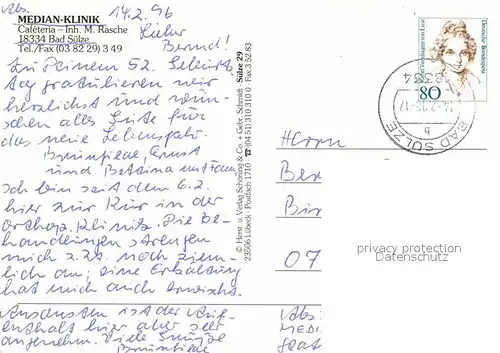 Abs.
14.2.96
MEDIAN-KLINIK
Cafeteria – Inh. M. Rasche
18334 Bad Sülze
Tel./Fax (03 82 29) 3 49
Lieber
Bernd!
Zu Deinem 52. Geburts-
tag gratulieren wir
herzlichst und wün-
schen alles Gute für
das neue Lebensjahr.
Brunhilde, Ernst
und Bettina mit Fam.
Ich bin seit dem 6.2.
hier zur Kur in der
Orthop. Klinik. Die Be-
handlungen strengen
mich z.Zt. noch ziem-
lich an; eine Erkältung
hat mich auch erwischt.
Ansonsten ist der Auf-
enthalt hier aber sehr
angenehm. Viele Grüße
Brunhilde
© Horst u. Verlag Schöning & Co. + Gebr. Schmidt · Sülze 29
23506 Lübeck · Postfach 1710 · ☎ (04 51) 310 310 · Fax 3 52 83
Deutsche Bundespost
Rahel Varnhagen von Ense
80
18334
BAD SÜLZE
b
Herrn
Ber
Bir
07
privacy protection
Datenschutz
Abs:
MEDI